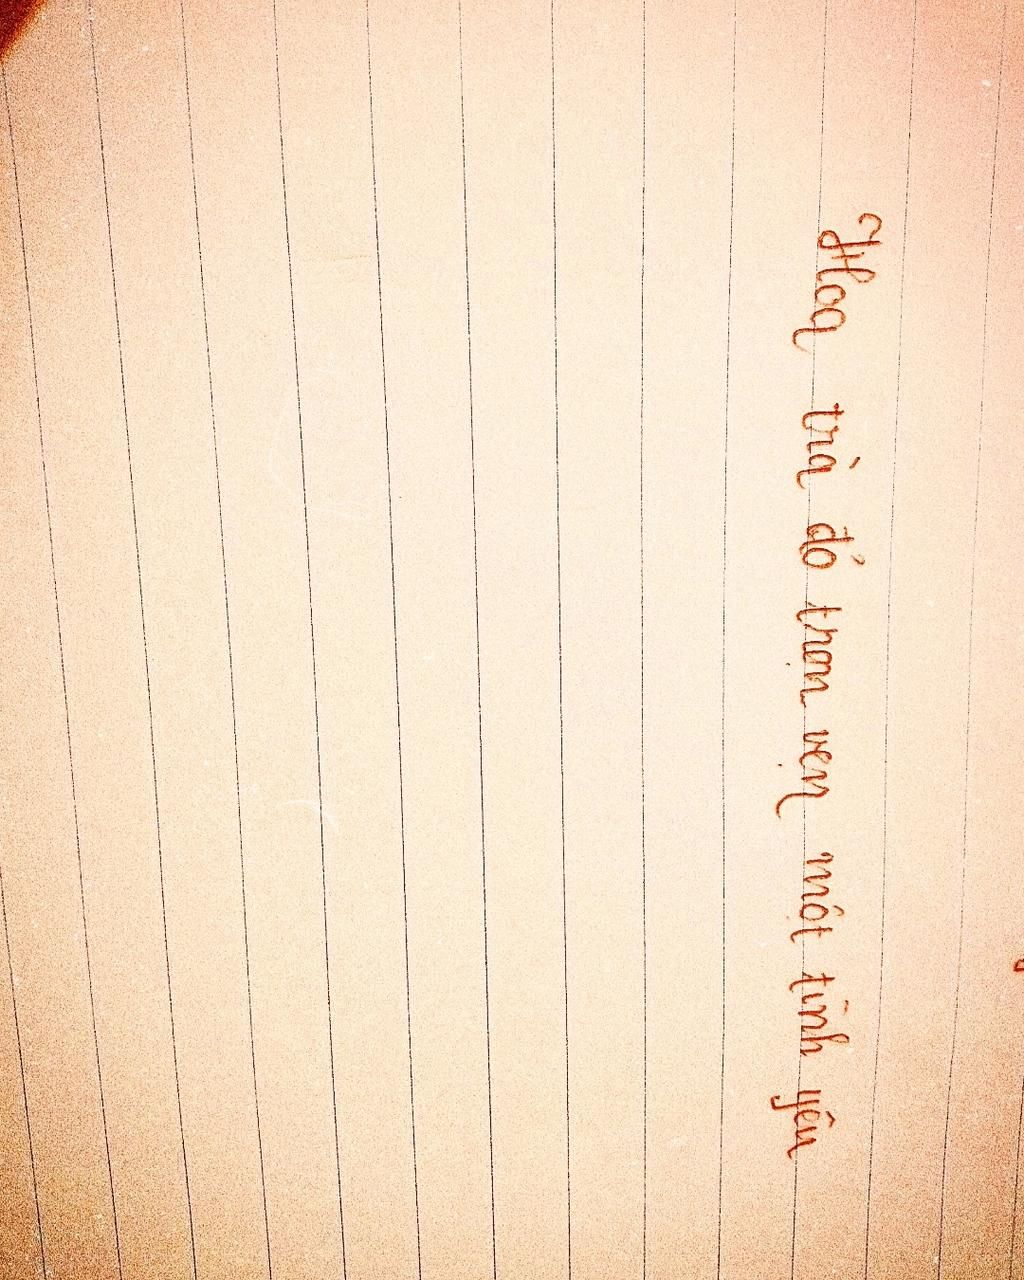 Hoa trà đỏ trọn vẹn một tình yêu